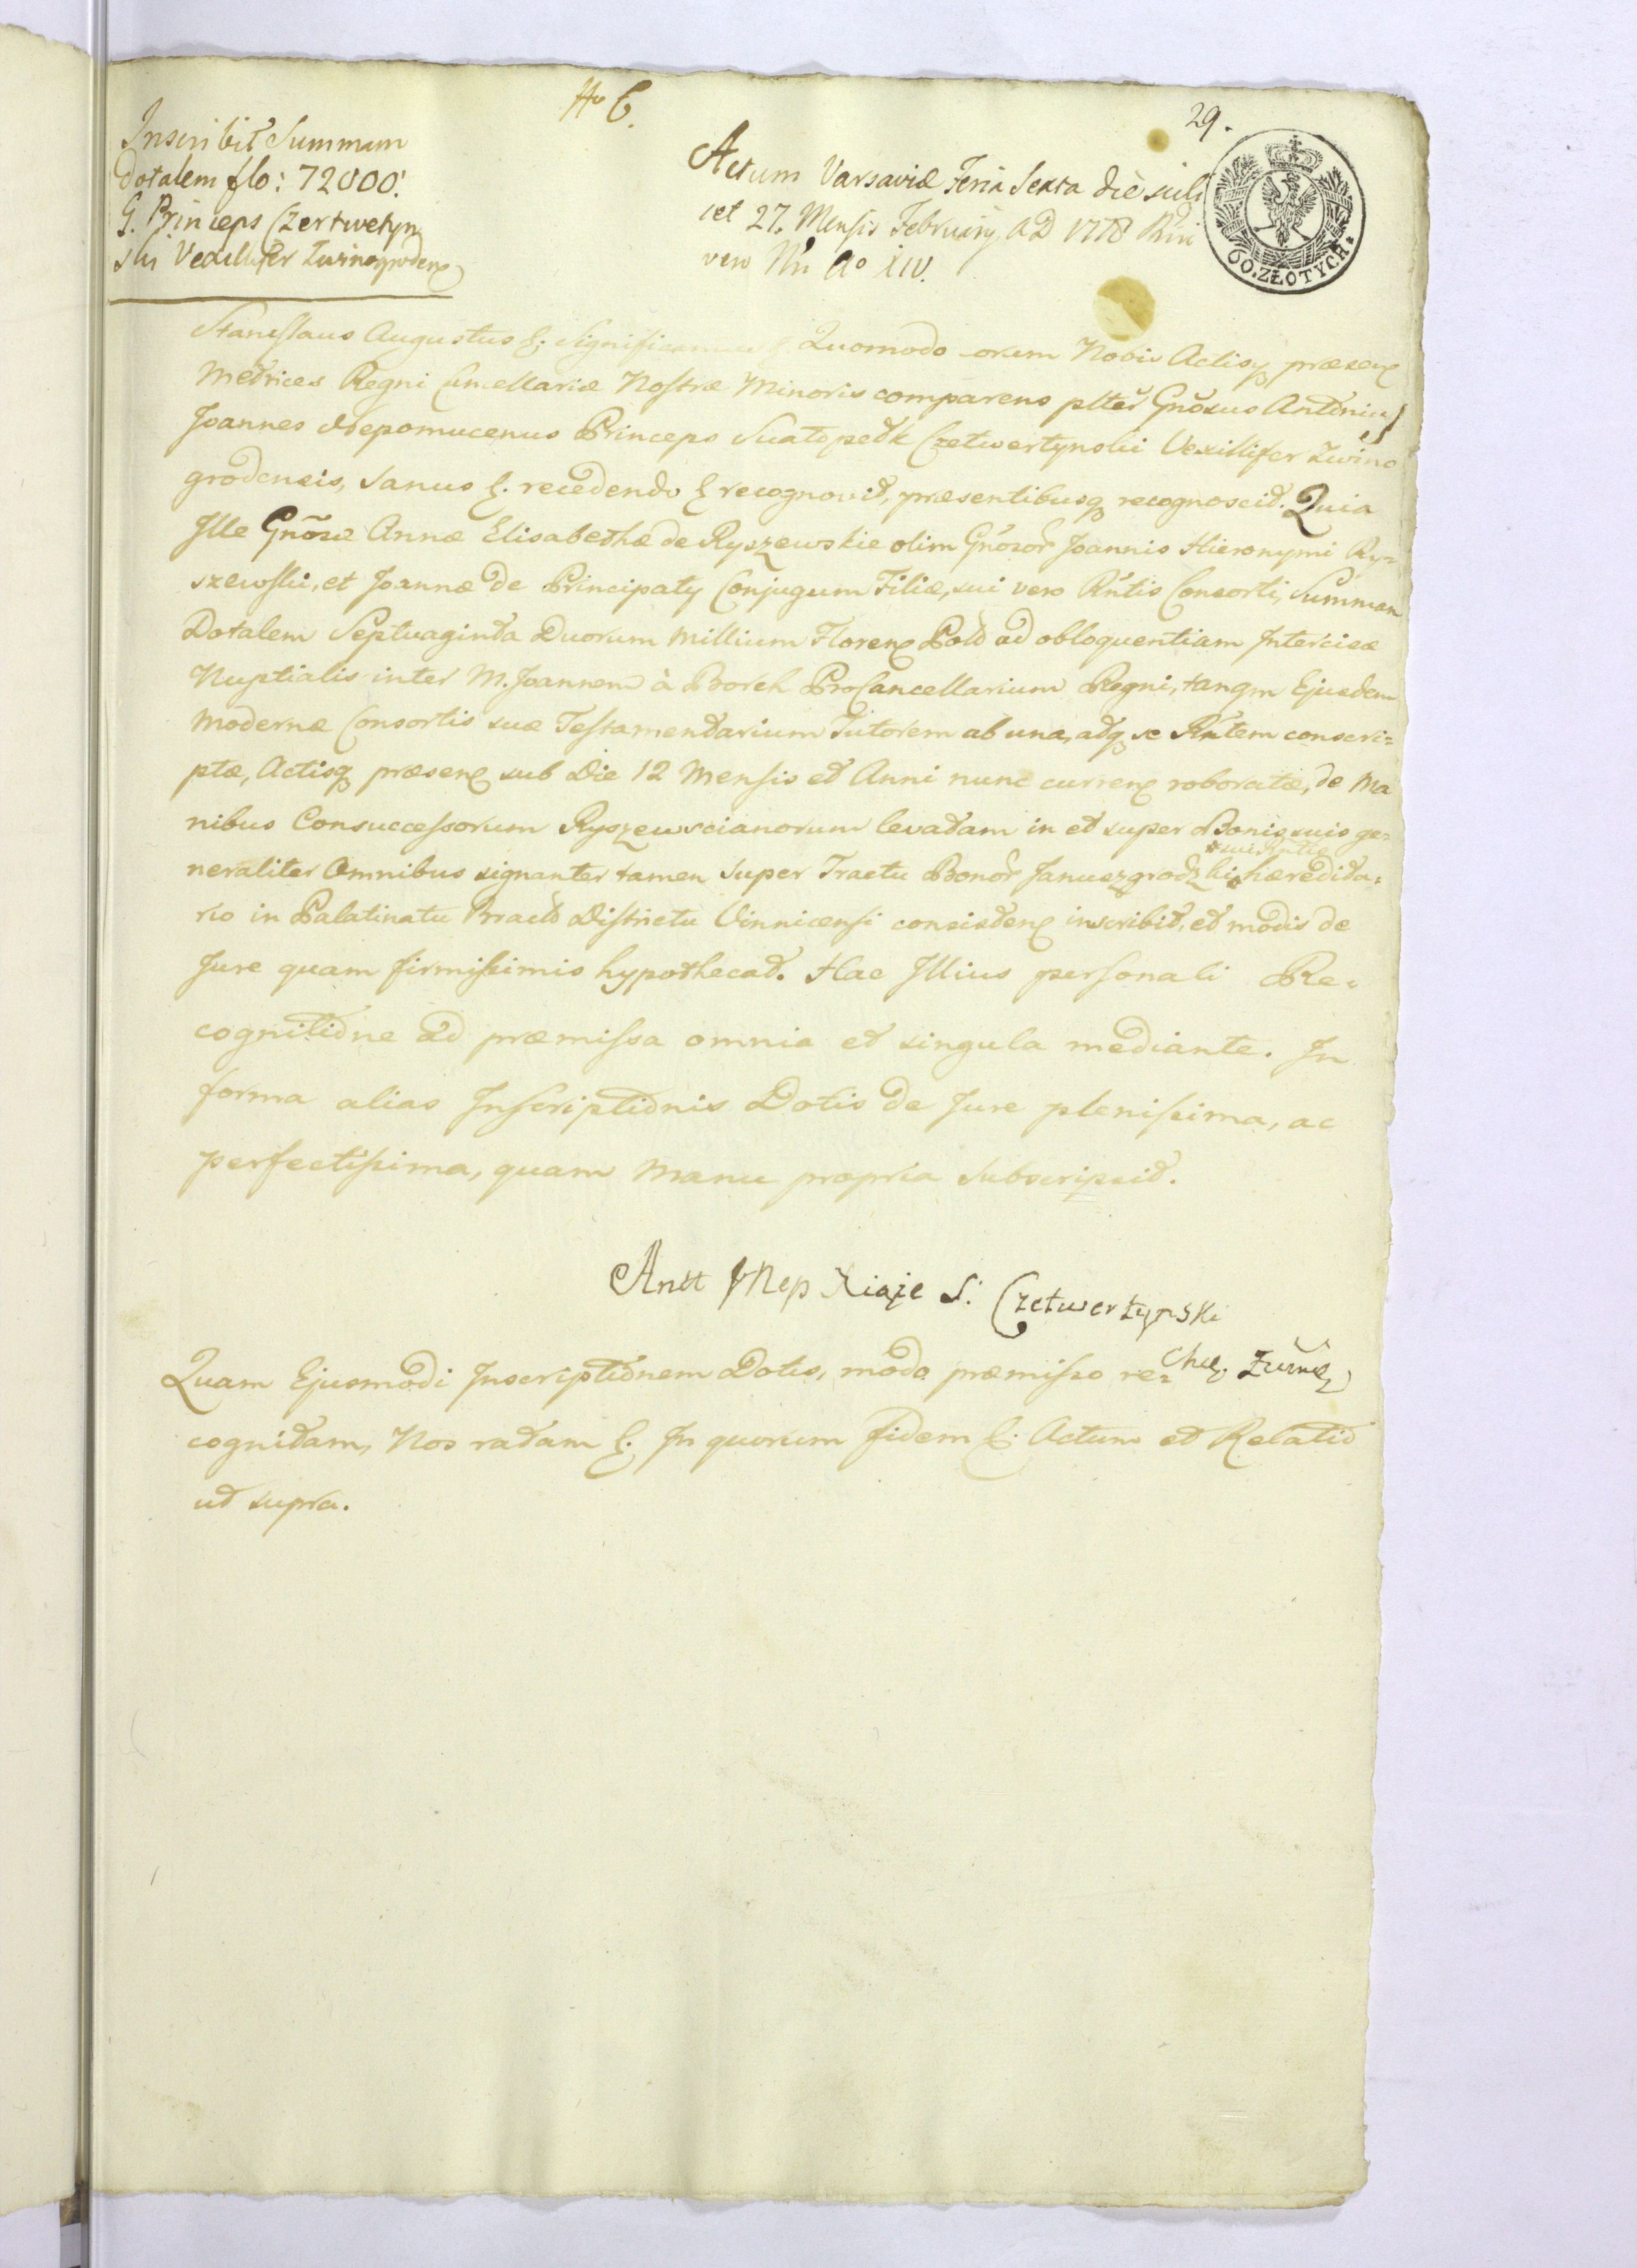 No 6.
29.
Inscribit Summam
dotalem flo: 72000.
G. Princeps Czertwetyn
ski Vexillifer Zwinogrodens
Actum Varsaviæ Feria Sexta die scili
cet 27. Mensis Februarij A D 1778 Rñi
vero Nri Ao XIV.
60. ZŁOTYCH.
Stanislaus Augustus &. Significamus &. Quomodo coram Nobis Actisq præsens
Metrices Regni Cancellariæ Nostræ Minoris comparens plter Gnosus Antonius
Joannes Nepomucenus Princeps Swatopelk Czetwertynski Vexillifer Zwino
grodensis, sanus &. recedendo & recognovit, præsentibusq recognoscit. Quia
Ille Gnõsæ Annæ Elisabethæ de Ryszewskie olim Gnõsor Joannis Hieronymi Ry=
szewski, et Joannæ de Principaty Conjugum Filiæ, sui vero Rñtis Consorti, Summam
Dotalem Septuaginta Duorum Millium Floren Pold ad obloquentiam Intercisæ
Nuptialis inter M. Joannem à Borch ProCancellarium Regni, tanqm Ejusdem
Modernæ Consortis suæ Testamentarium Tutorem ab una, atq se Rñtem conscri=
ptæ, Actisq præsens sub Die 12 Mensis et Anni nunc curren roboratæ, de Ma
nibus Consuccessorum Ryszewscianorum levatam in et super Bonis suis ge=
neraliter Omnibus signanter tamen super Tractu Bonor Januszgrodzki sui Rñtis hæredita=
rio in Palatinatu Bracl Districtu Vinnicensi consisten inscribit, et modis de
Jure quam firmissimis hypothecat. Hac Illius personali Re=
cognitione ad præmissa omnia et singula mediante. In
forma alias Inscriptionis Dotis de Jure plenissima, ac
perfectissima, quam Manu propria subscripsit.
Antt JNep Xiąże S: Czetwertynski
Cho. Zwing
Quam Ejusmodi Inscriptionem Dotis, modo præmisso re=
cognitam, Nos ratam &. In quorum fidem &. Actum et Relatio
ut supra.